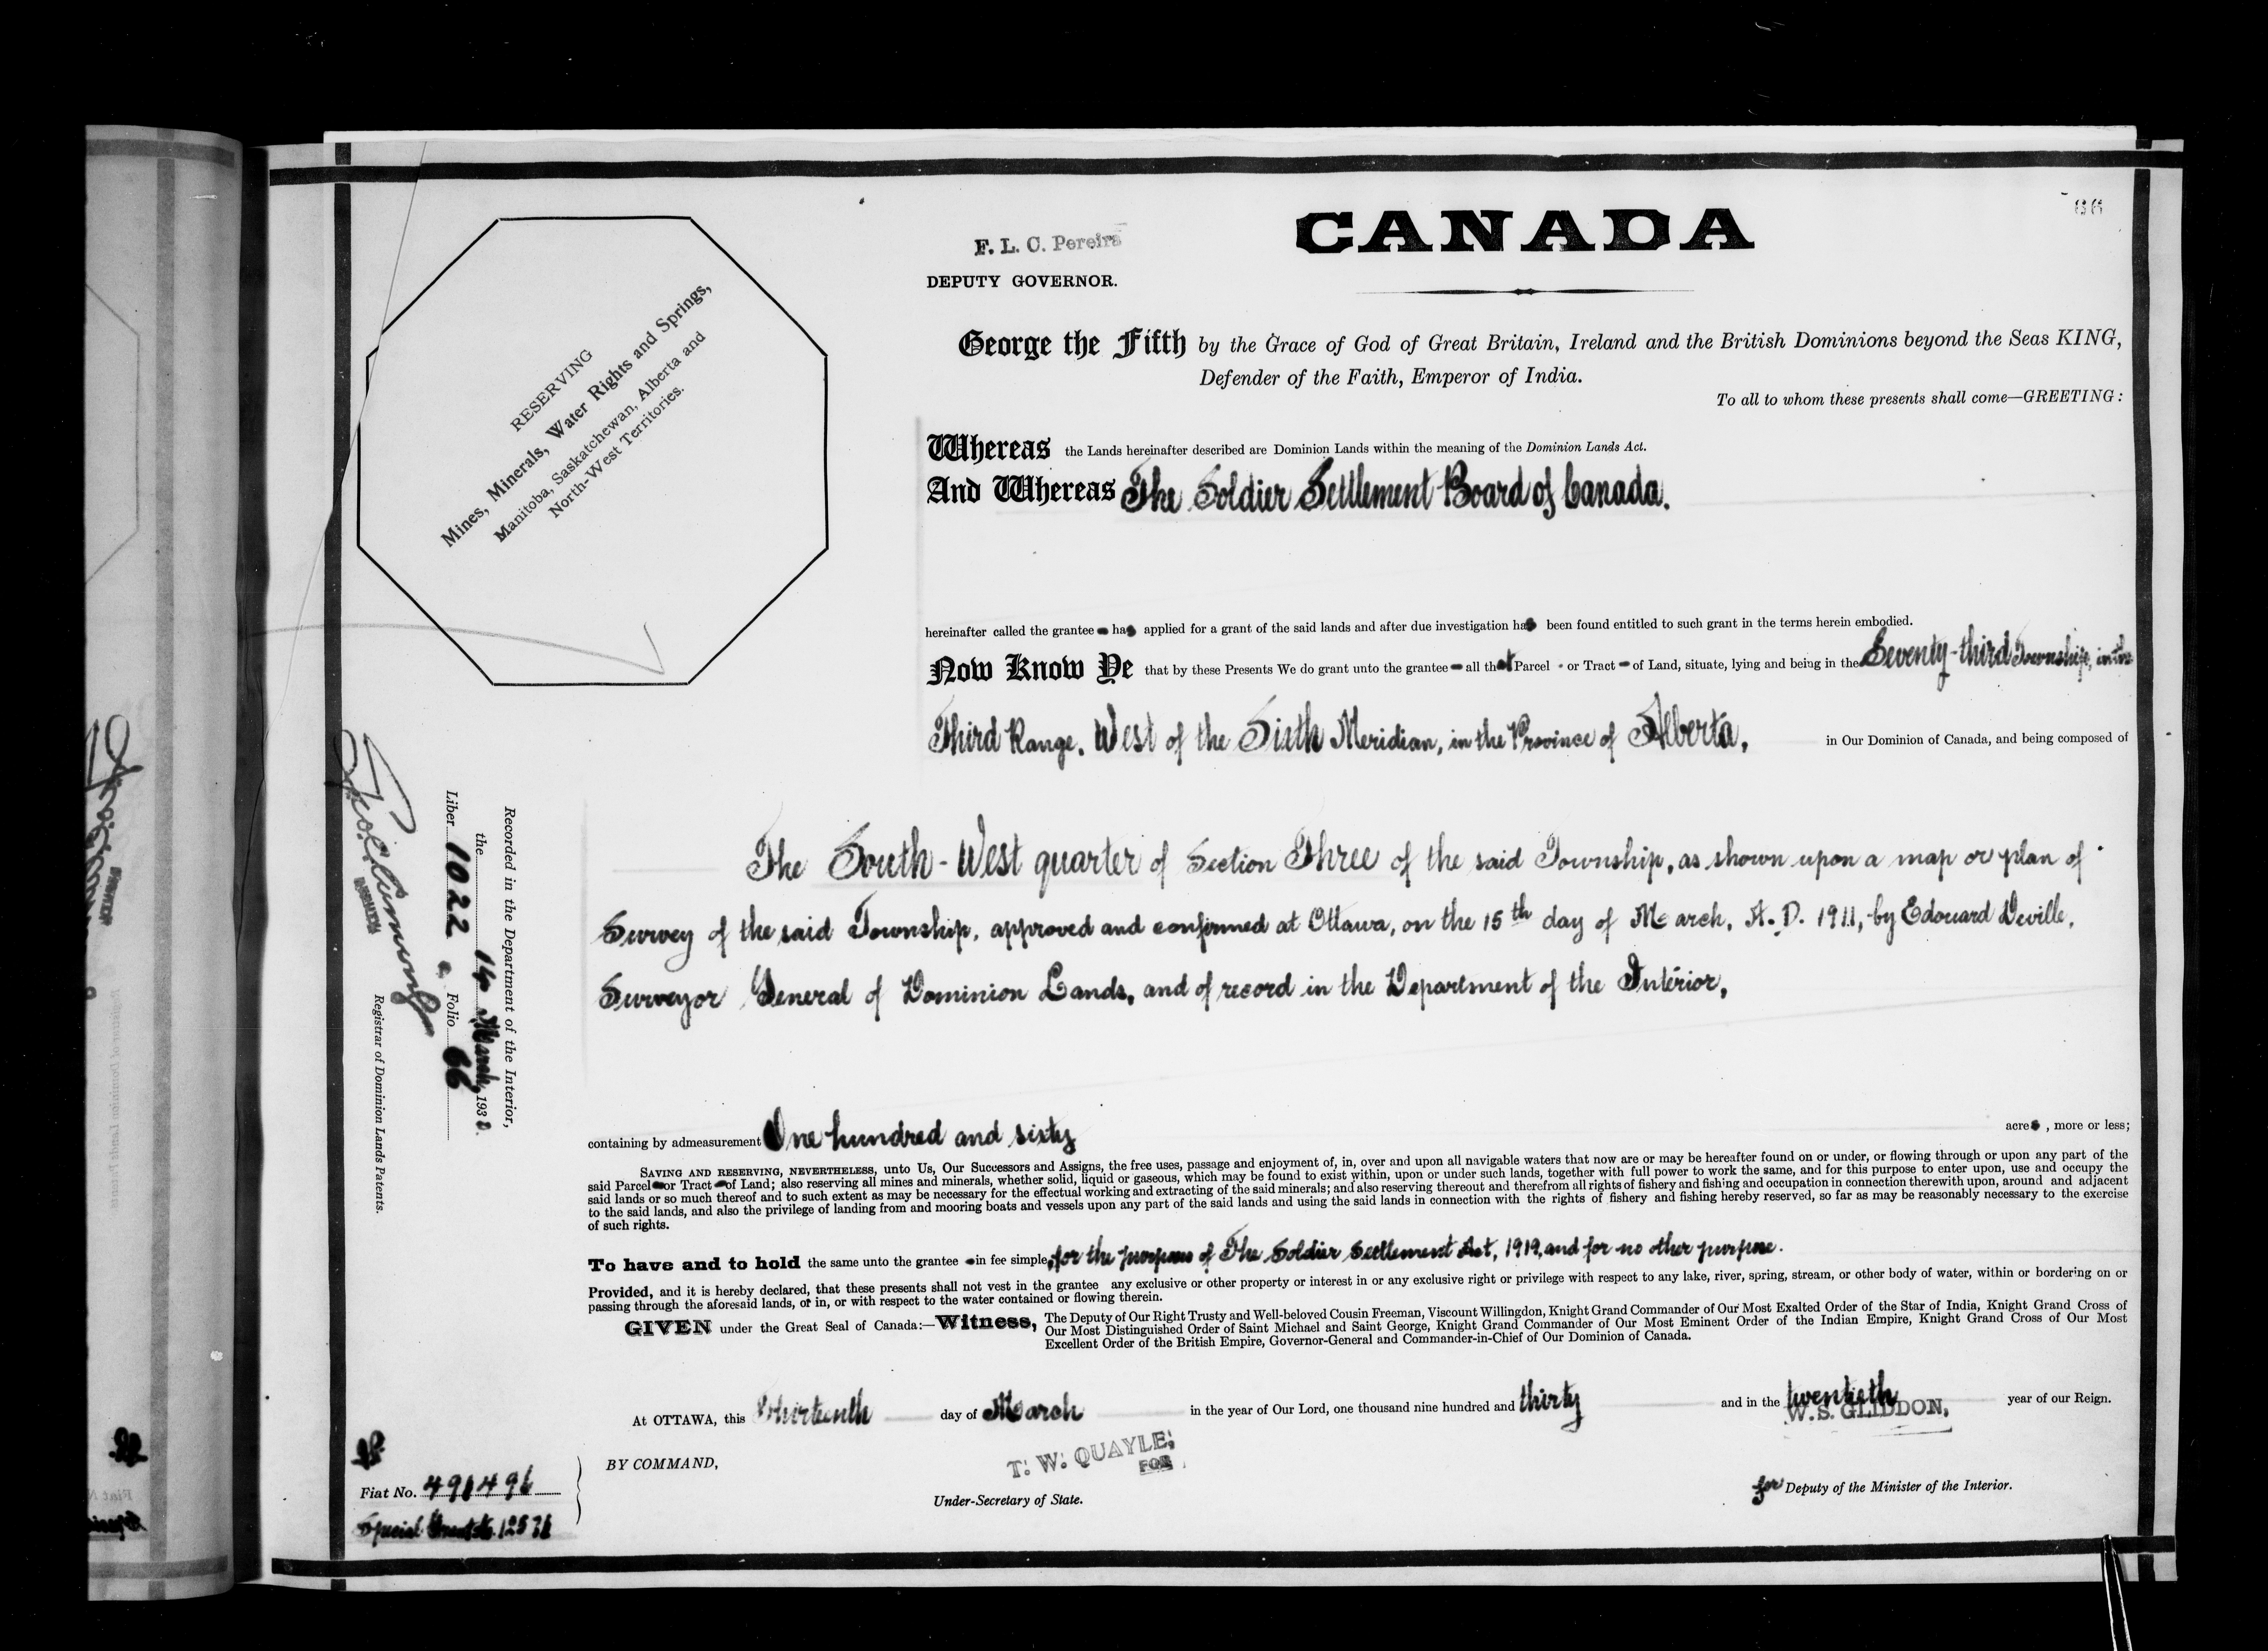 66
F. L. C. Pereira
DEPUTY GOVERNOR.
CANADA
RESERVING
Mines, Minerals, Water Rights and Springs,
Manitoba, Saskatchewan, Alberta and
North-West Territories.
George the Fifth by the Grace of God of Great Britain, Ireland and the British Dominions beyond the Seas KING,
Defender of the Faith, Emperor of India.
To all to whom these presents shall come—GREETING:
Whereas the Lands hereinafter described are Dominion Lands within the meaning of the Dominion Lands Act.
And Whereas The Soldier Settlement Board of Canada.
hereinafter called the grantee has applied for a grant of the said lands and after due investigation has been found entitled to such grant in the terms herein embodied.
Now Know Ye that by these Presents We do grant unto the grantee all that Parcel or Tract of Land, situate, lying and being in the Seventy-third Township, in the
Third Range, West of the Sixth Meridian, in the Province of Alberta, in Our Dominion of Canada, and being composed of
The South-West quarter of Section Three of the said Township, as shown upon a map or plan of
Survey of the said Township, approved and confirmed at Ottawa, on the 15th day of March, A.D. 1911, by Edouard Deville,
Surveyor General of Dominion Lands, and of record in the Department of the Interior,
containing by admeasurement One hundred and sixty acres, more or less;
SAVING AND RESERVING, NEVERTHELESS, unto Us, Our Successors and Assigns, the free uses, passage and enjoyment of, in, over and upon all navigable waters that now are or may be hereafter found on or under, or flowing through or upon any part of the
said Parcel or Tract of Land; also reserving all mines and minerals, whether solid, liquid or gaseous, which may be found to exist within, upon or under such lands, together with full power to work the same, and for this purpose to enter upon, use and occupy the
said lands or so much thereof and to such extent as may be necessary for the effectual working and extracting of the said minerals; and also reserving thereout and therefrom all rights of fishery and fishing and occupation in connection therewith upon, around and adjacent
to the said lands, and also the privilege of landing from and mooring boats and vessels upon any part of the said lands and using the said lands in connection with the rights of fishery and fishing hereby reserved, so far as may be reasonably necessary to the exercise
of such rights.
To have and to hold the same unto the grantee in fee simple, for the purposes of The Soldier Settlement Act, 1919, and for no other purpose.
Provided, and it is hereby declared, that these presents shall not vest in the grantee any exclusive or other property or interest in or any exclusive right or privilege with respect to any lake, river, spring, stream, or other body of water, within or bordering on or
passing through the aforesaid lands, or in, or with respect to the water contained or flowing therein.
GIVEN under the Great Seal of Canada:—Witness, The Deputy of Our Right Trusty and Well-beloved Cousin Freeman, Viscount Willingdon, Knight Grand Commander of Our Most Exalted Order of the Star of India, Knight Grand Cross of
Our Most Distinguished Order of Saint Michael and Saint George, Knight Grand Commander of Our Most Eminent Order of the Indian Empire, Knight Grand Cross of Our Most
Excellent Order of the British Empire, Governor-General and Commander-in-Chief of Our Dominion of Canada.
At OTTAWA, this thirteenth day of March in the year of Our Lord, one thousand nine hundred and thirty and in the twentieth year of our Reign.
W. S. GLIDDON,
BY COMMAND,
T. W. QUAYLE,
FOR
Under-Secretary of State.
for Deputy of the Minister of the Interior.
Recorded in the Department of the Interior,
the 14 March, 1930.
Liber 1022 Folio 66
Registrar of Dominion Lands Patents.
Fiat No. 491496
Special Grant No.